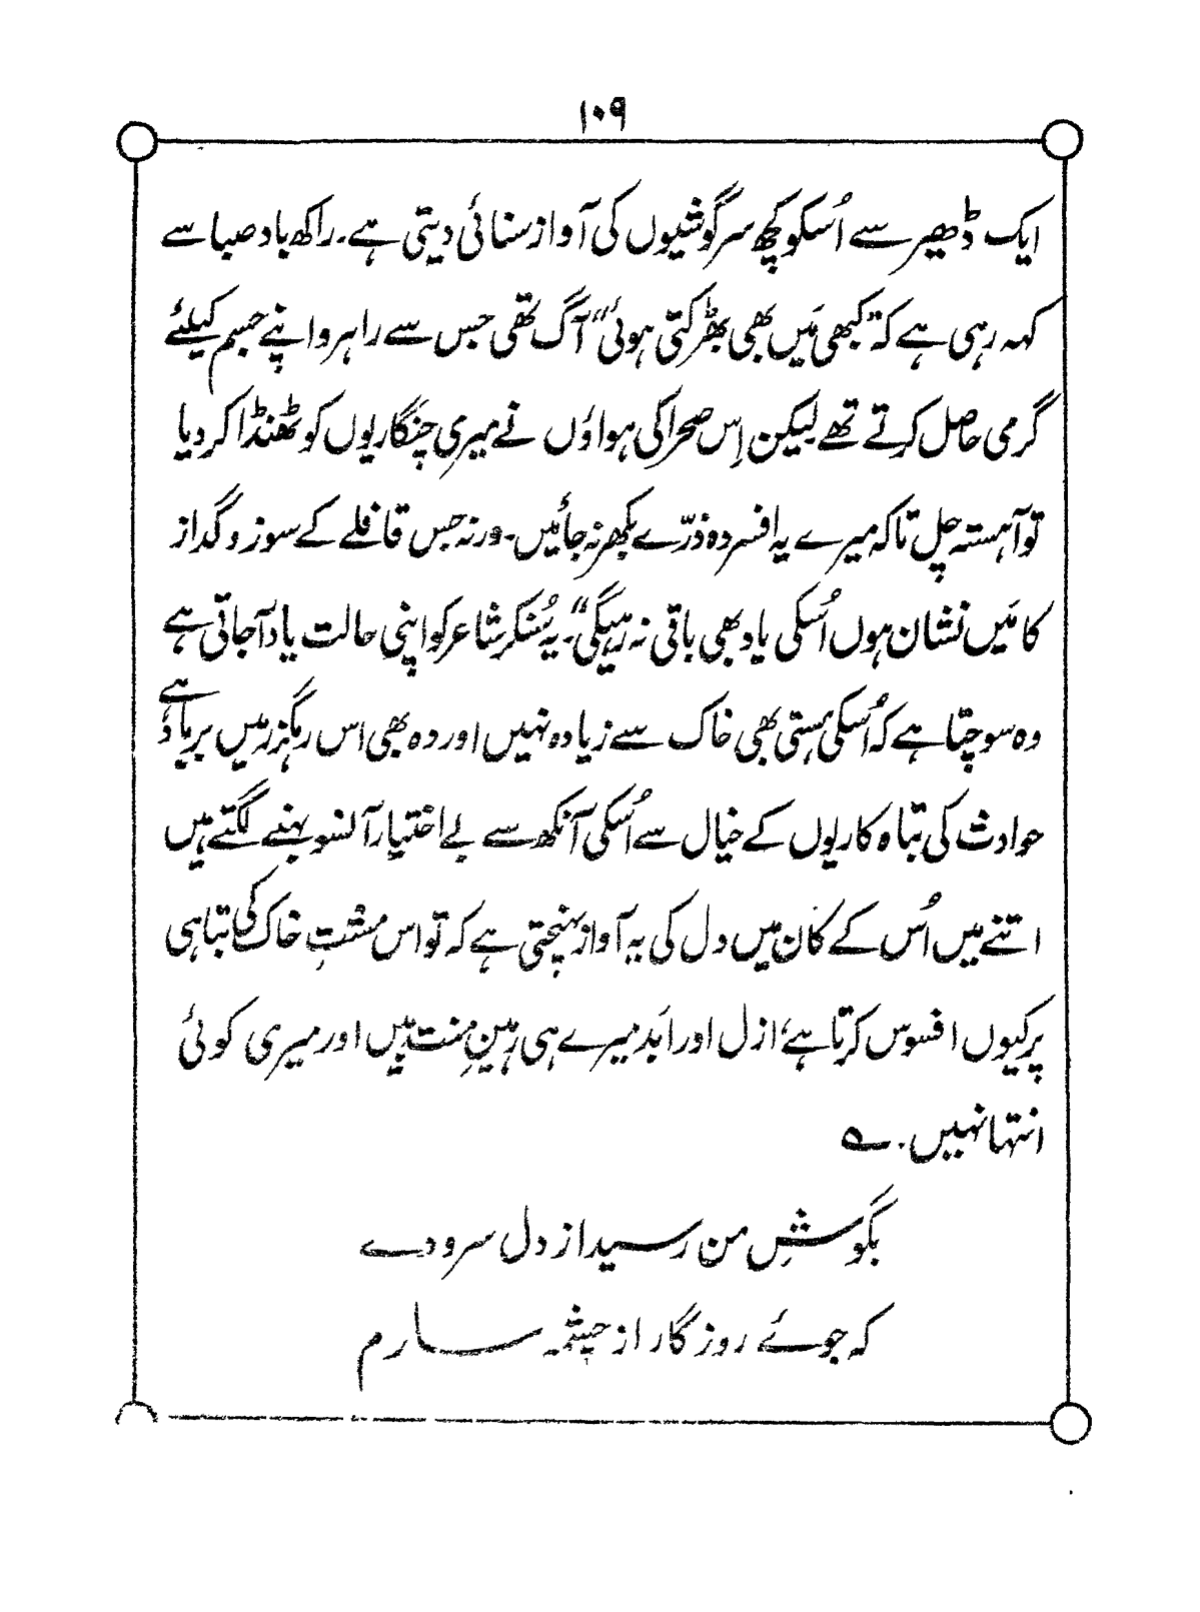 ۱۰۹
ایک ڈھیر سے اُسکو کچھ سرگوشیوں کی آواز سنائی دیتی ہے۔ راکھ باد صبا سے
کہہ رہی ہے کہ "کبھی مَیں بھی بھڑکتی ہوئی" آگ تھی جس سے راہرو اپنے جسم کیلئے
گرمی حاصل کرتے تھے لیکن اِس صحرا کی ہواؤں نے میری چنگاریوں کو ٹھنڈا کر دیا
تو آہستہ چل تاکہ میرے یہ افسردہ ذرّے بکھر نہ جائیں۔ ورنہ جس قافلے کے سوز و گداز
کا مَیں نشان ہوں اُسکی یاد بھی باقی نہ رہیگی"۔ یہ سُنکر شاعر کو اپنی حالت یاد آجاتی ہے
وہ سوچتا ہے کہ اُسکی ہستی بھی خاک سے زیادہ نہیں اور وہ بھی اس رہگزر میں برباد ہے
حوادث کی تباہ کاریوں کے خیال سے اُسکی آنکھ سے بے اختیار آنسو بہنے لگتے ہیں
اتنے میں اُس کے کان میں دل کی یہ آواز پہنچتی ہے کہ تو اس مشتِ خاک کی تباہی
پر کیوں افسوس کرتا ہے؟ ازل اور ابَد میرے ہی رہینِ منت ہیں اور میری کوئی
انتہا نہیں۔ ے
بگوشِ من رسید از دل سرودے
کہ جوئے روزگار از چشمہ سارم